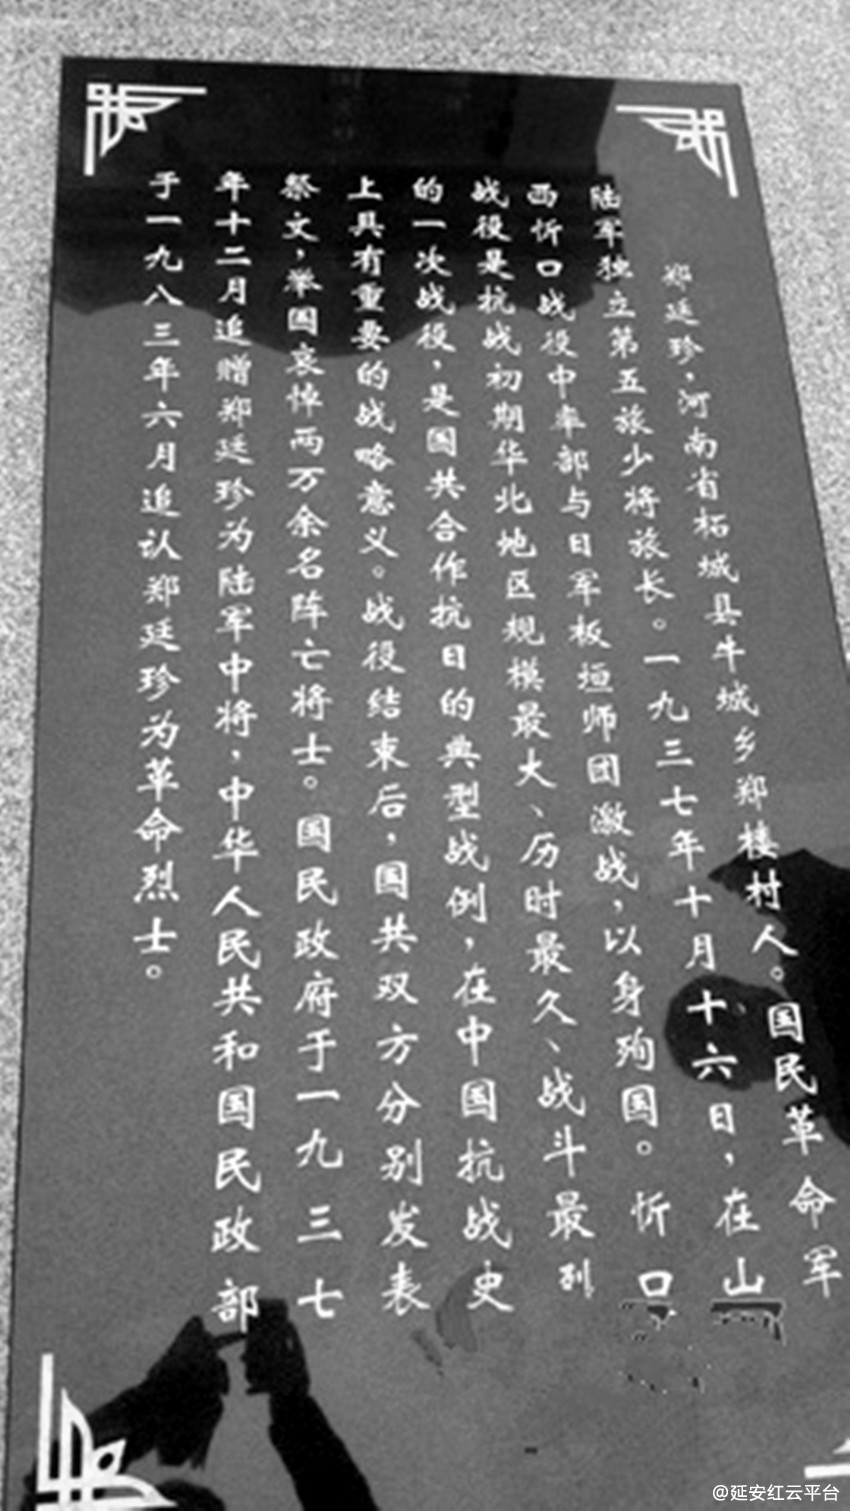 郑廷珍，河南省柘城县牛城乡郑楼村人。国民革命军
陆军独立第五旅少将旅长。一九三七年十月十六日，在山
西忻口战役中率部与日军板垣师团激战，以身殉国。忻口
战役是抗战初期华北地区规模最大、历时最久、战斗最烈
的一次战役，是国共合作抗日的典型战例，在中国抗战史
上具有重要的战略意义。战役结束后，国共双方分别发表
祭文，举国哀悼两万余名阵亡将士。国民政府于一九三七
年十二月追赠郑廷珍为陆军中将，中华人民共和国民政部
于一九八三年六月追认郑廷珍为革命烈士。
@延安红云平台